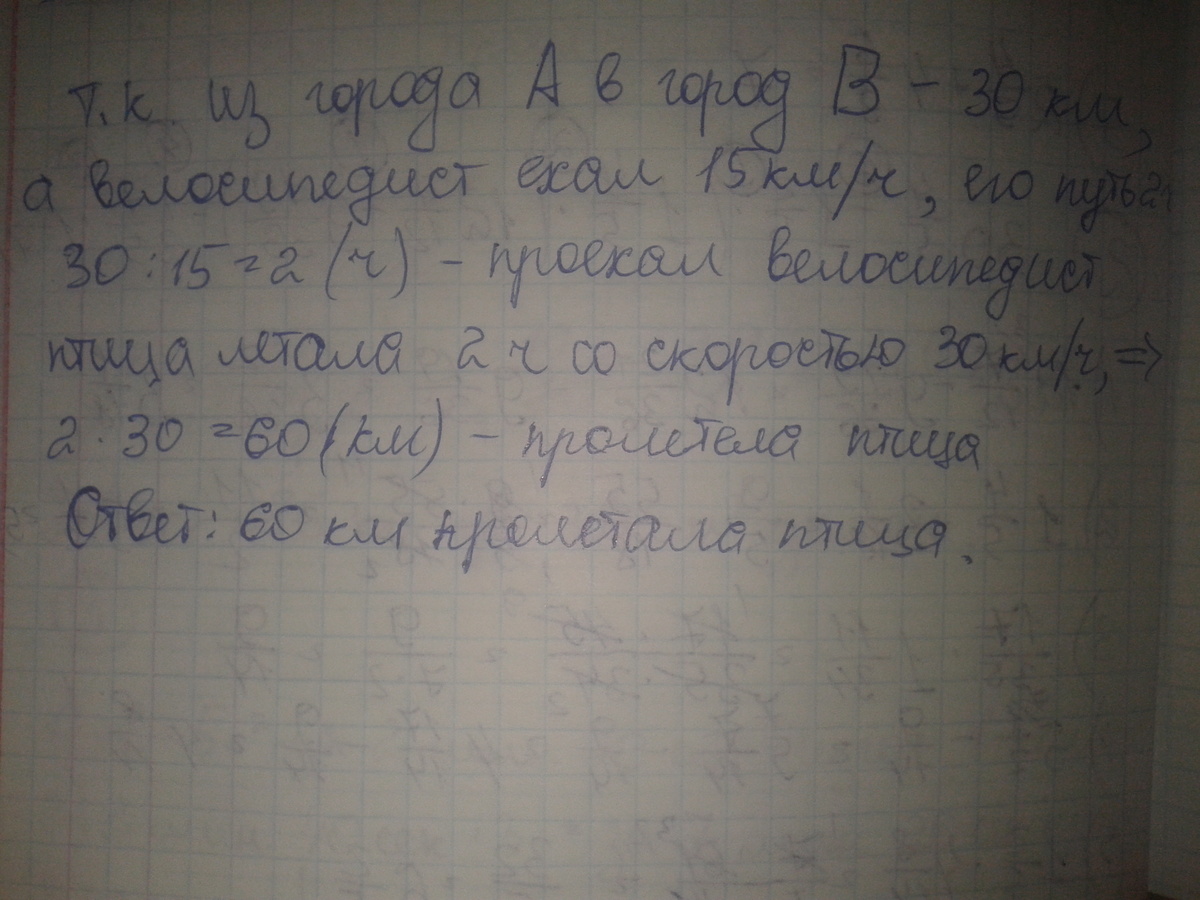 т.к. из города А в город В - 30 км,
а велосипедист ехал 15 км/ч, его путь 2ч
30 : 15 = 2 (ч) - проехал велосипедист
птица летала 2 ч со скоростью 30 км/ч, =>
2 · 30 = 60 (км) - пролетела птица
Ответ: 60 км пролетала птица.